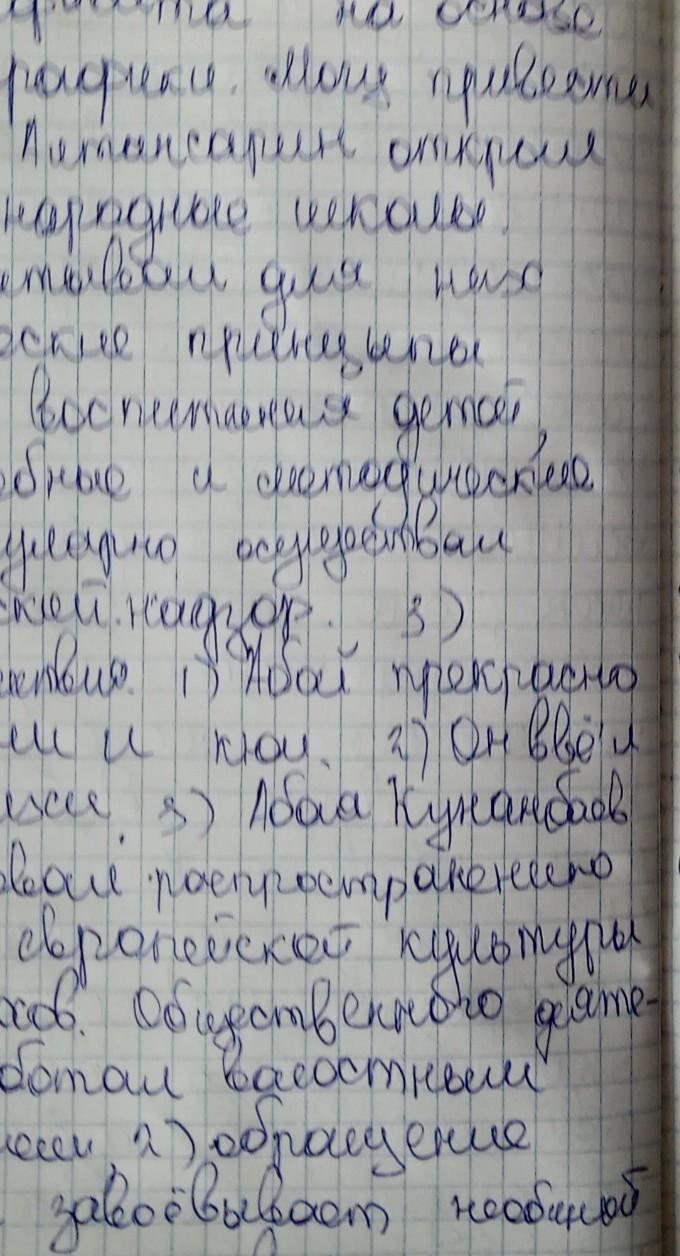 на основе
графики. Могу привести
Алтынсарин открыл
народные школы.
для них
ские принципы
воспитания детей,
ебные и методические
улярно осуществал
ский надзор. 3)
1) Абай прекрасно
ли и кюи. 2) Он ввёл
3) Абай Кунанбаев
овал распространению
европейской культуры
хов. Общественного деяте-
ботал волостным
2) обращение
завоёвывает